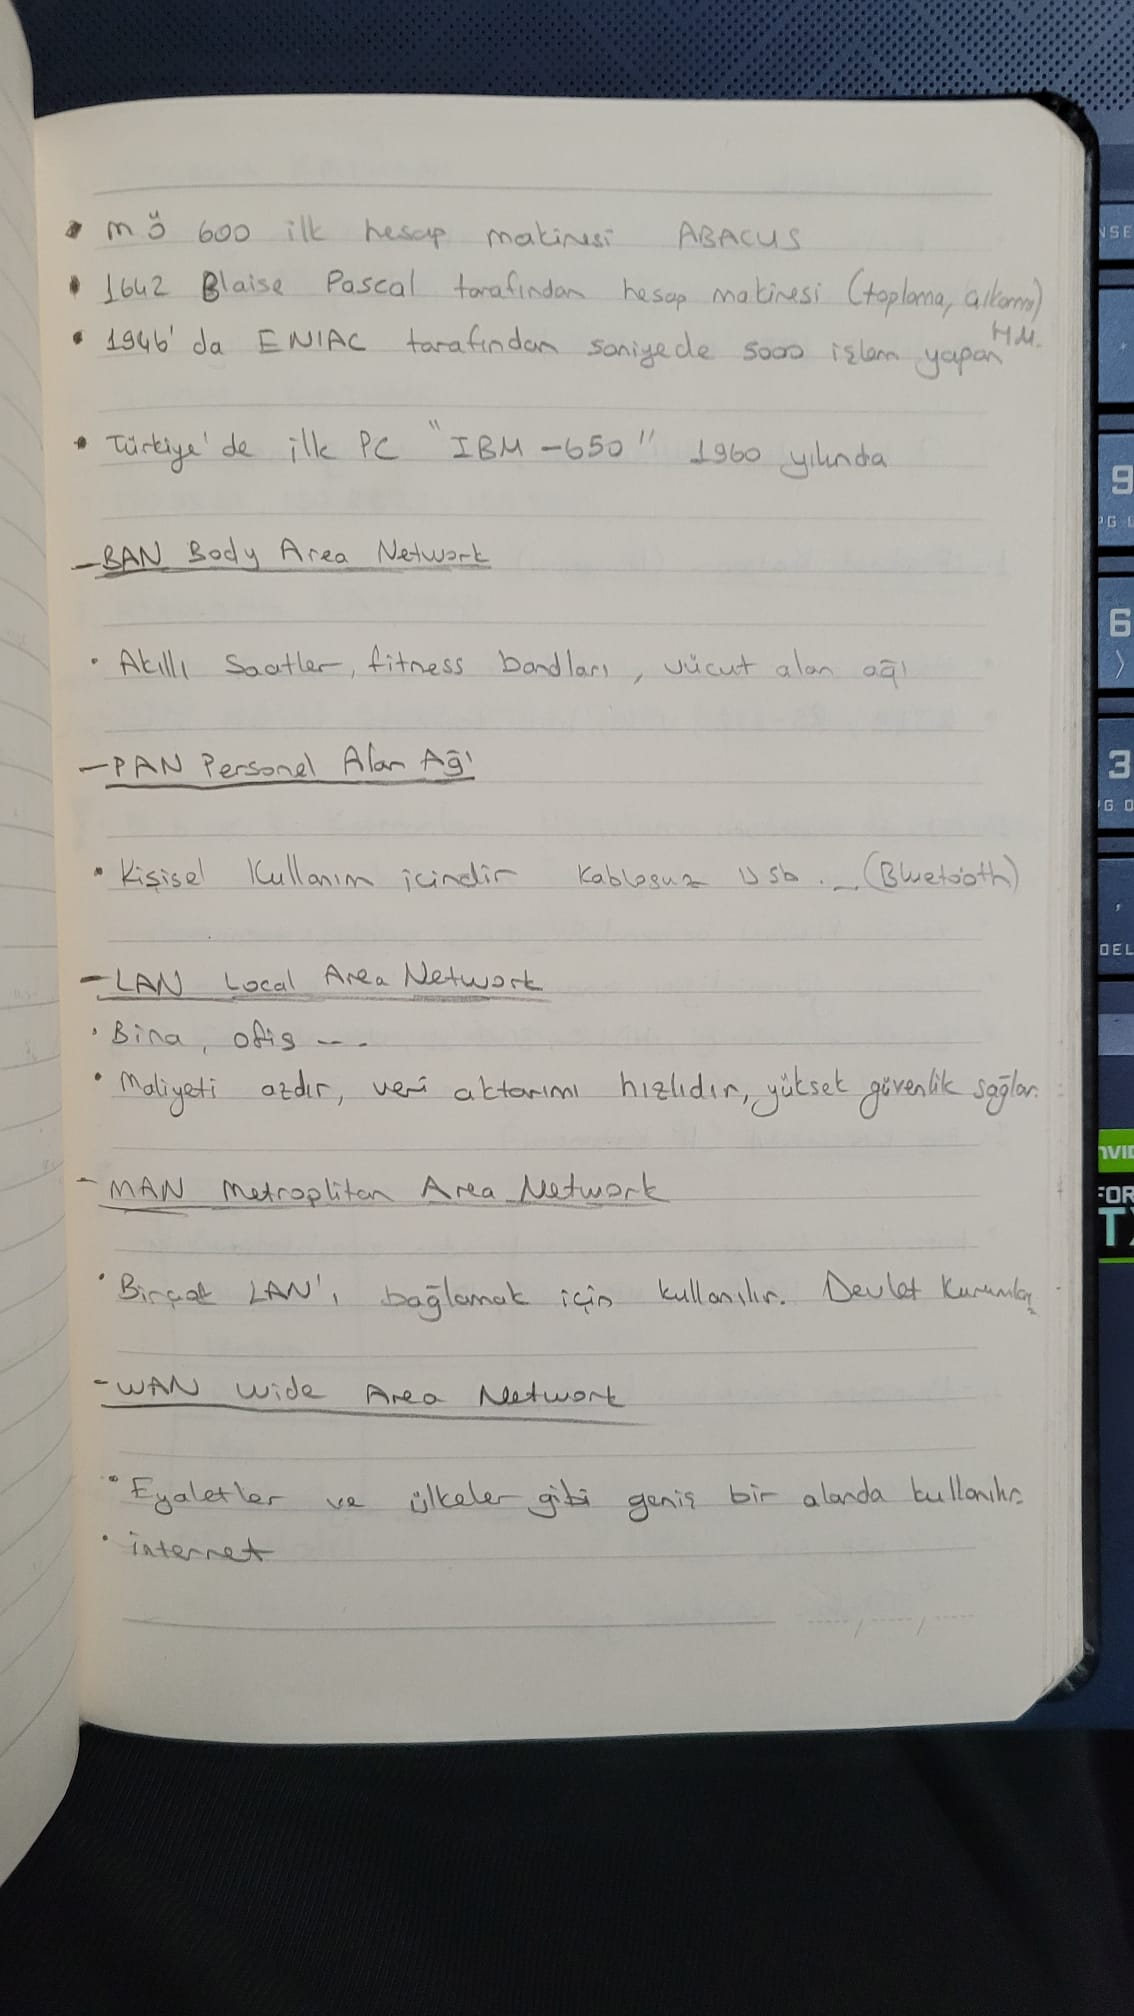 • mö 600 ilk hesap makinesi ABACUS
• 1642 Blaise Pascal tarafından hesap makinesi (toplama, çıkarma)
• 1946' da ENIAC tarafından saniyede 5000 işlem yapan H.M.
• Türkiye'de ilk PC "IBM -650" 1960 yılında
- BAN Body Area Network
• Akıllı Saatler, fitness bandları, vücut alan ağı
- PAN Personel Alan Ağı
• Kişisel Kullanım içindir Kablosuz Usb ... (Bluetooth)
- LAN Local Area Network
• Bina, ofis ---
• Maliyeti azdır, veri aktarımı hızlıdır, yüksek güvenlik sağlar.
- MAN Metroplitan Area Network
• Birçok LAN'ı bağlamak için kullanılır. Devlet Kurumları
- WAN Wide Area Network
• Eyaletler ve ülkeler gibi geniş bir alanda kullanılır
• internet
NSE
9
PG
6
3
PG D
,
DEL
NVID
FOR